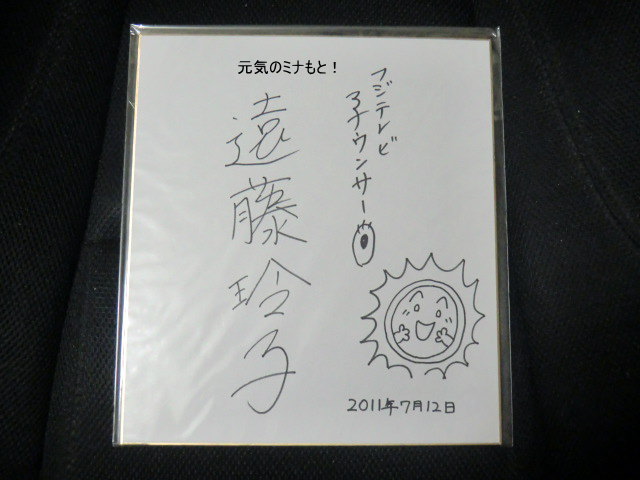 元気のミナもと！
フジテレビ
アナウンサー
遠藤玲子
2011年7月12日